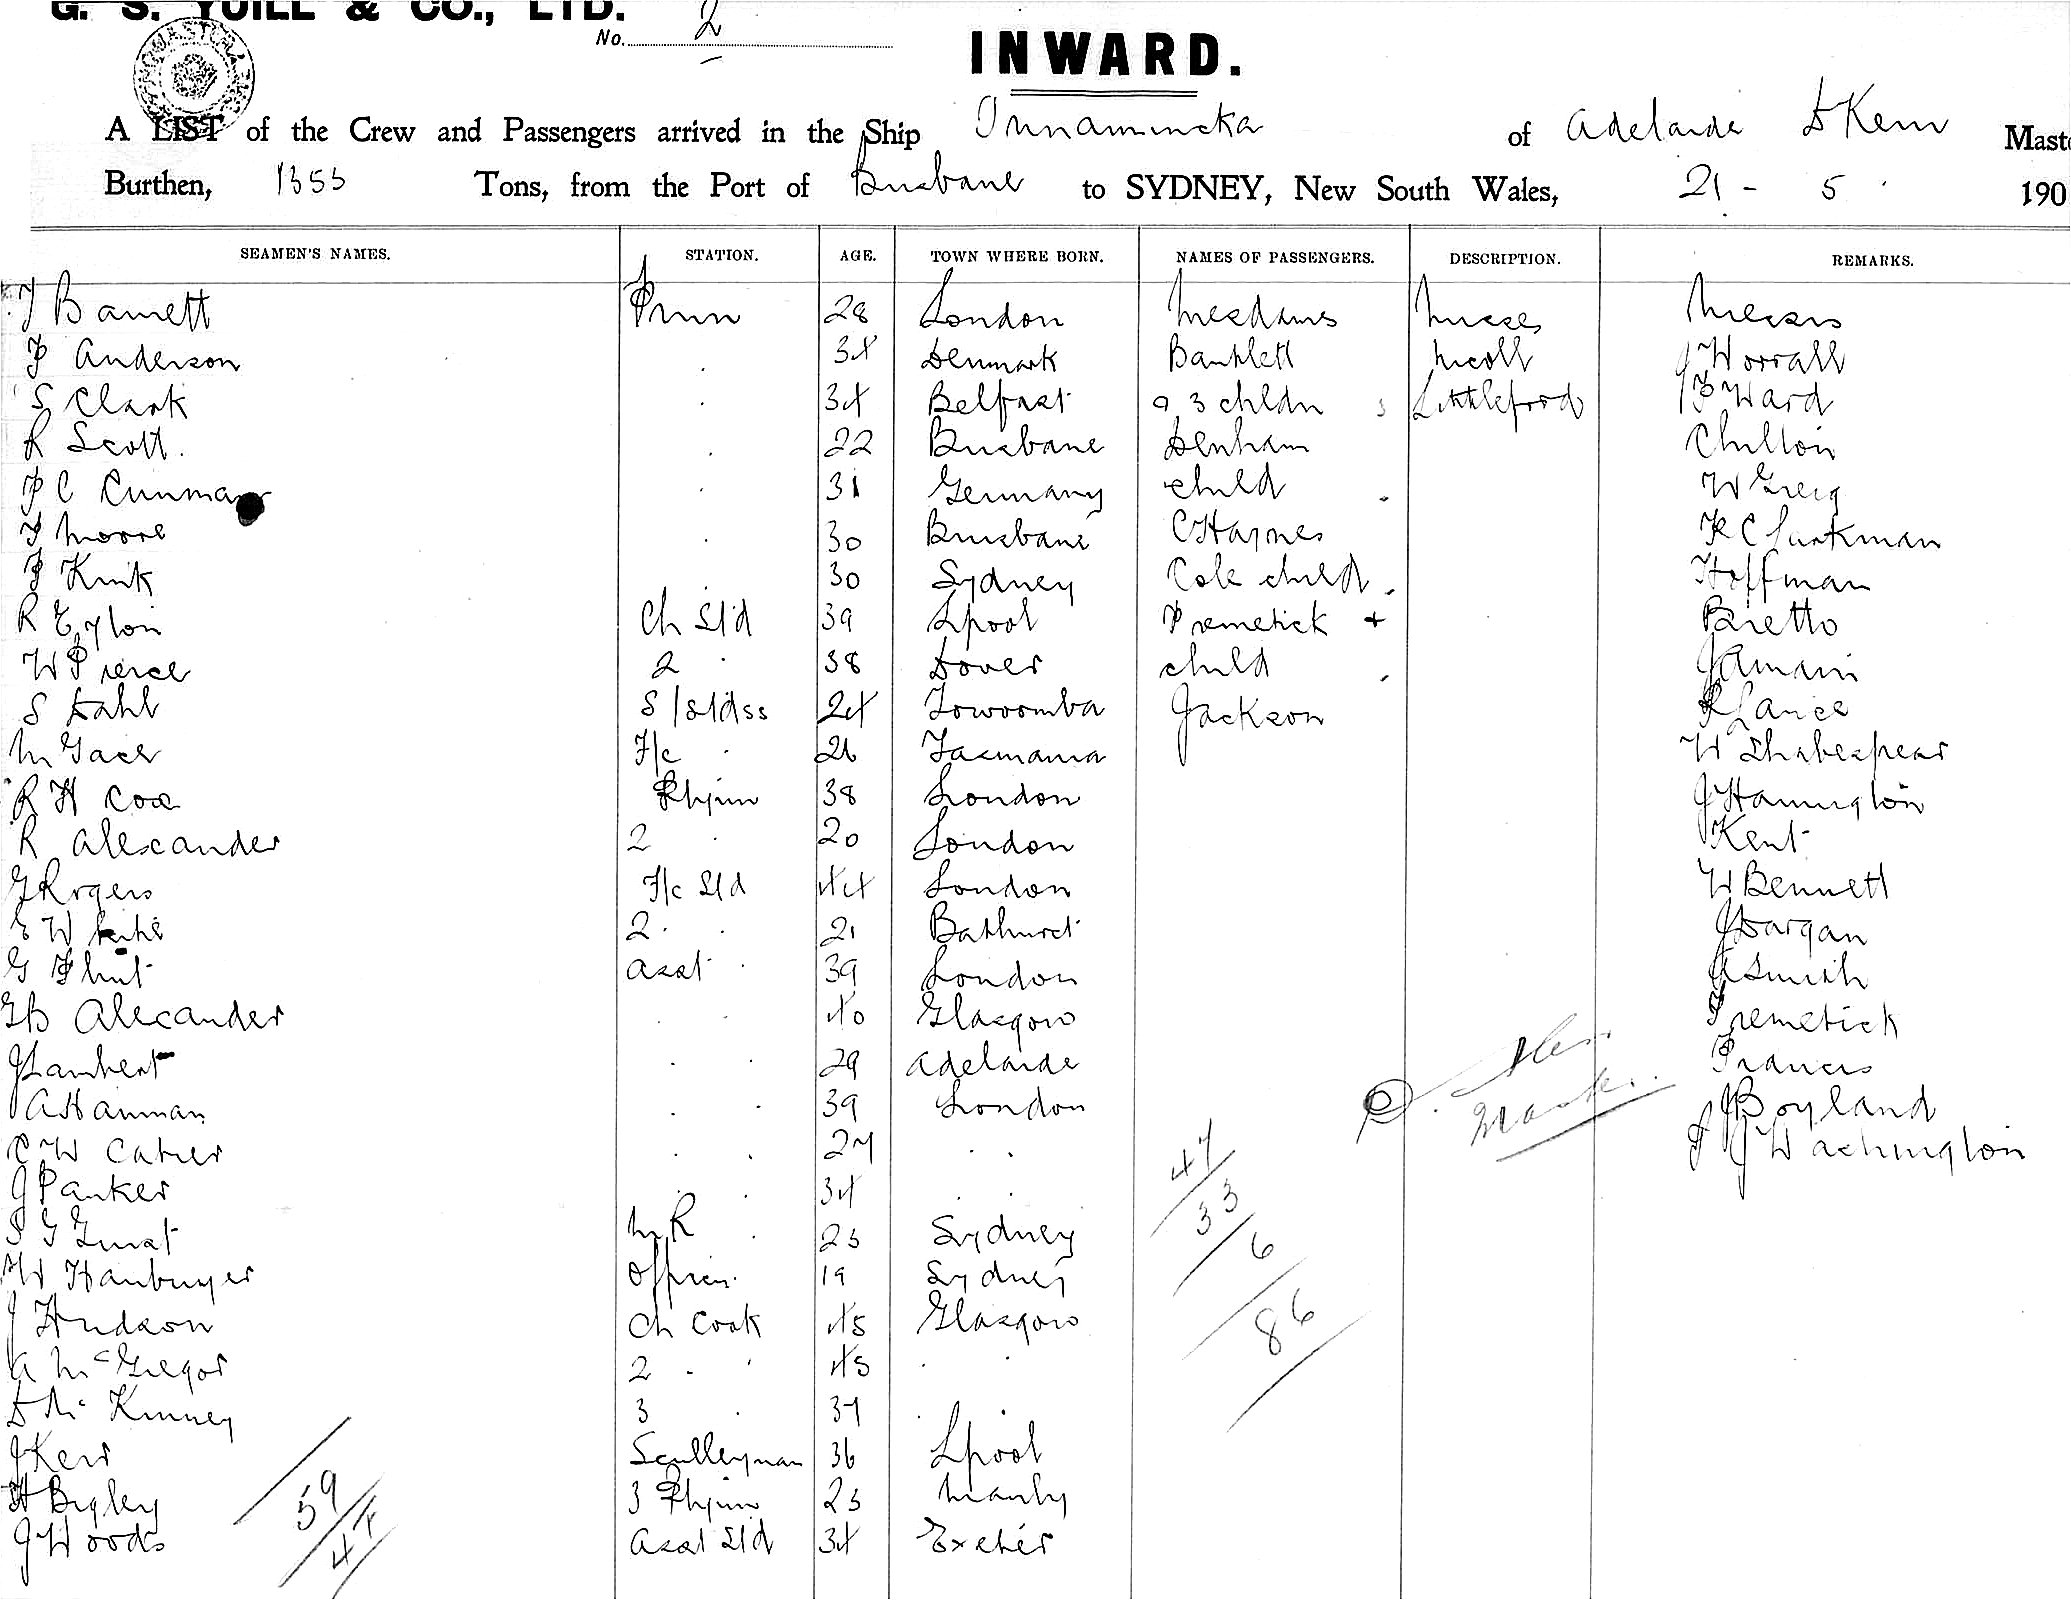 G. S. YUILL & CO., LTD.
No. 2
INWARD.
A LIST of the Crew and Passengers arrived in the Ship Innamincka of Adelaide D Kerr Maste
Burthen, 1353 Tons, from the Port of Brisbane to SYDNEY, New South Wales, 21 - 5 190
SEAMEN'S NAMES. STATION. AGE. TOWN WHERE BORN. NAMES OF PASSENGERS. DESCRIPTION. REMARKS.
J Barnett Fmn 28 London Mesdames Misses Messrs
P Anderson 34 Denmark Bartlett Nicoll J Worrall
S Clark 34 Belfast 3 chldn Littleford Ward
R Scott 22 Brisbane Denham Chillon
31 Germany child W Greig
Moore 30 Brisbane C Haynes
30 Sydney Cole child Hoffman
R Ch Std 39 Lpool Premetick + Bretto
W Pierce 2 38 Dover child
S Dahl 24 Towoomba Jackson R Lance
M F/c 26 Tasmania W Shakespear
R H Cox 38 London J Hannington
R Alexander 2 20 London Kent
G Rogers F/c Std 44 London W Bennett
E White 2 21 Bathurst J Dargan
G Flint Asst 39 London A Smith
G B Alexander 40 Glasgow Premetick
J Lambert 29 Adelaide Francis
A Hanman 39 London J Boyland
C W Cater 27 J Washington
J Parker 34
M R 23 Sydney
W Officers 19 Sydney
J Hudson Ch Cook 45 Glasgow
A McGregor 2 45
D Mc Kinney 3 37
J Kerr Sculleyman 36 Lpool
H Bigley 3 23 Manly
J Woods Asst Std 34 Exeter
47
33
6
86
59
47